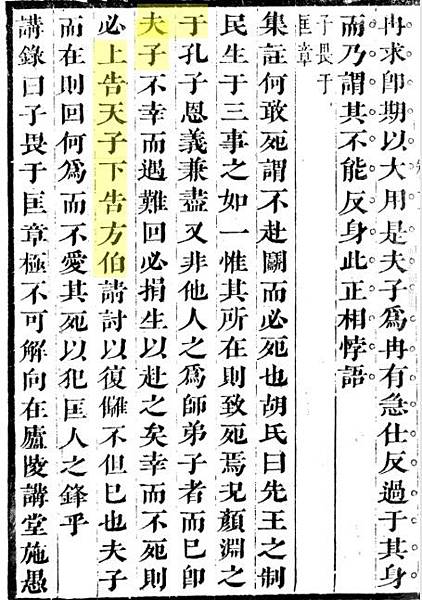 冉求卽期以大用是夫子爲冉有急仕反過于其身
而乃謂其不能反身此正相悖語
子畏于
匡章
集註何敢死謂不赴鬭而必死也胡氏曰先王之制
民生于三事之如一惟其所在則致死焉况顏淵之
于孔子恩義兼盡又非他人之爲師弟子者而已卽
夫子不幸而遇難回必捐生以赴之矣幸而不死則
必上告天子下告方伯請討以復讎不但已也夫子
而在則回何爲而不愛其死以犯匡人之鋒乎
講錄曰子畏于匡章極不可解向在廬陵講堂施愚